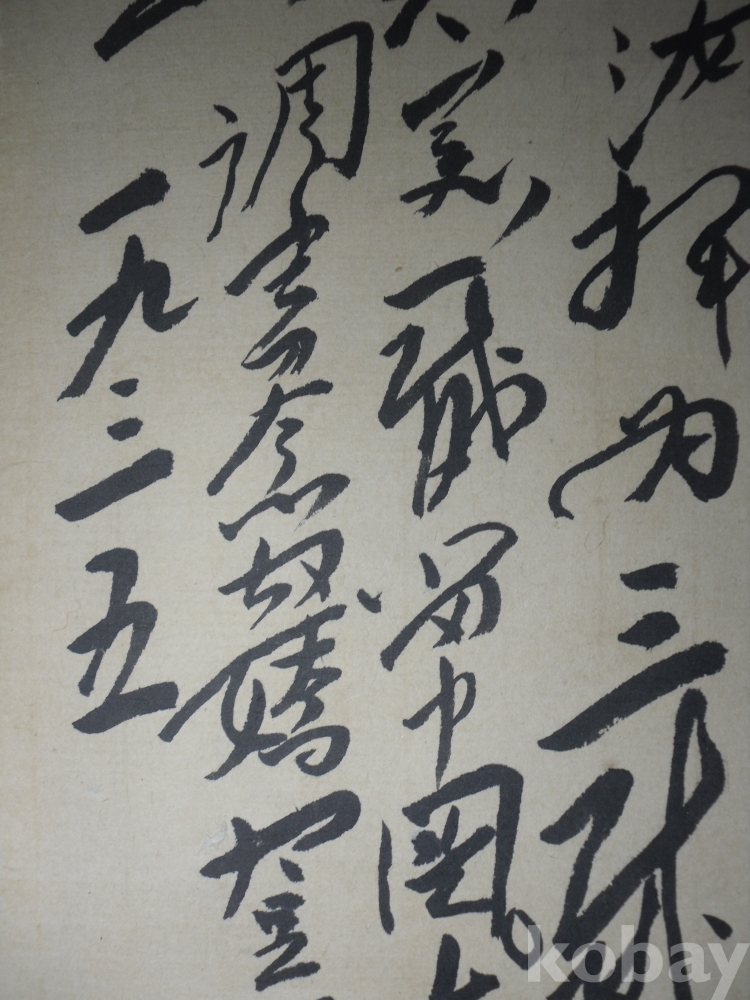 汝挥为三截
美一截留中国
调寄念奴娇登
一九三五
kobay